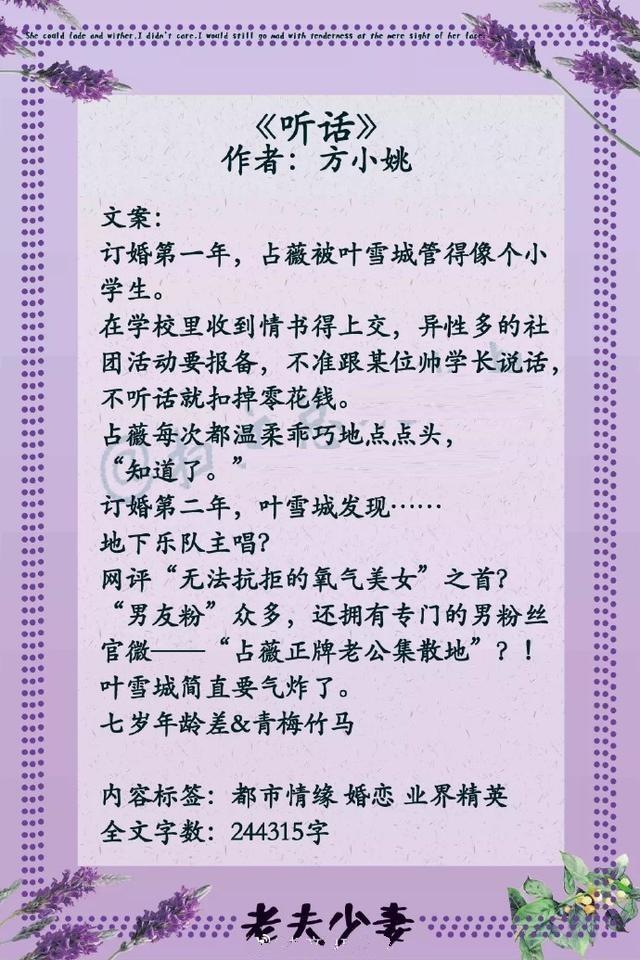 She could fade and wither, I didn't care. I would still go mad with tenderness at the mere sight of her face.
《听话》
作者：方小姚
文案：
订婚第一年，占薇被叶雪城管得像个小
学生。
在学校里收到情书得上交，异性多的社
团活动要报备，不准跟某位帅学长说话，
不听话就扣掉零花钱。
占薇每次都温柔乖巧地点点头，
“知道了。”
订婚第二年，叶雪城发现……
地下乐队主唱？
网评“无法抗拒的氧气美女”之首？
“男友粉”众多，还拥有专门的男粉丝
官微——“占薇正牌老公集散地”？！
叶雪城简直要气炸了。
七岁年龄差&青梅竹马
内容标签：都市情缘 婚恋 业界精英
全文字数：244315字
老夫少妻